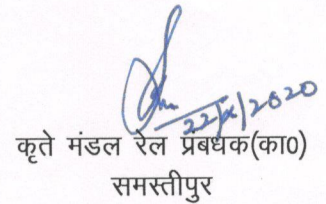 22/x/2020
कृते मंडल रेल प्रबंधक(का0)
समस्तीपुर